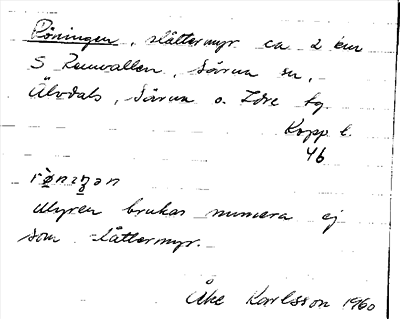 Röningen, slåttermyr ca 2 km
S Renvallen, Särna sn,
Älvdals, Särna o. Idre tg.
Kopp. l.
46
rø̀nıŋən
Myren brukas numera ej
som slåttermyr.
Åke Karlsson 1960